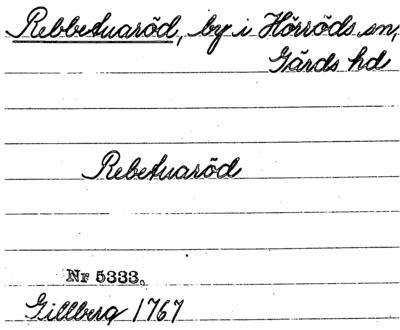 Rebbetuaröd, by i Hörröds sn,
Gärds hd
Rebetuaröd
Nr 5333.
Gillberg 1767